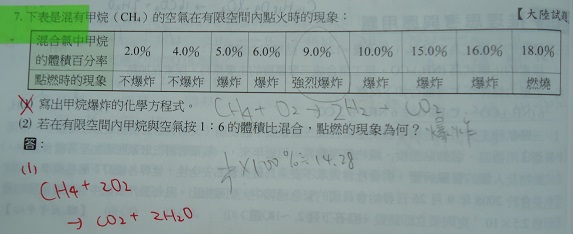 7.下表是混有甲烷（CH₄）的空氣在有限空間內點火時的現象： 【大陸試題
混合氣中甲烷的體積百分率 2.0% 4.0% 5.0% 6.0% 9.0% 10.0% 15.0% 16.0% 18.0%
點燃時的現象 不爆炸 不爆炸 爆炸 爆炸 強烈爆炸 爆炸 爆炸 爆炸 燃燒
(1) 寫出甲烷爆炸的化學方程式。 CH4 + O2 → 2H2 + CO2
(2) 若在有限空間內甲烷與空氣按 1：6 的體積比混合，點燃的現象為何？ 爆炸
答：
1/7 ×100% ≒ 14.28
(1)
CH4 + 2O2
→ CO2 + 2H2O